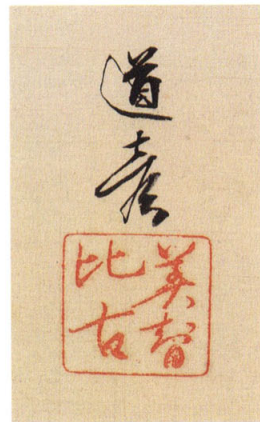 道彦
美智
比古